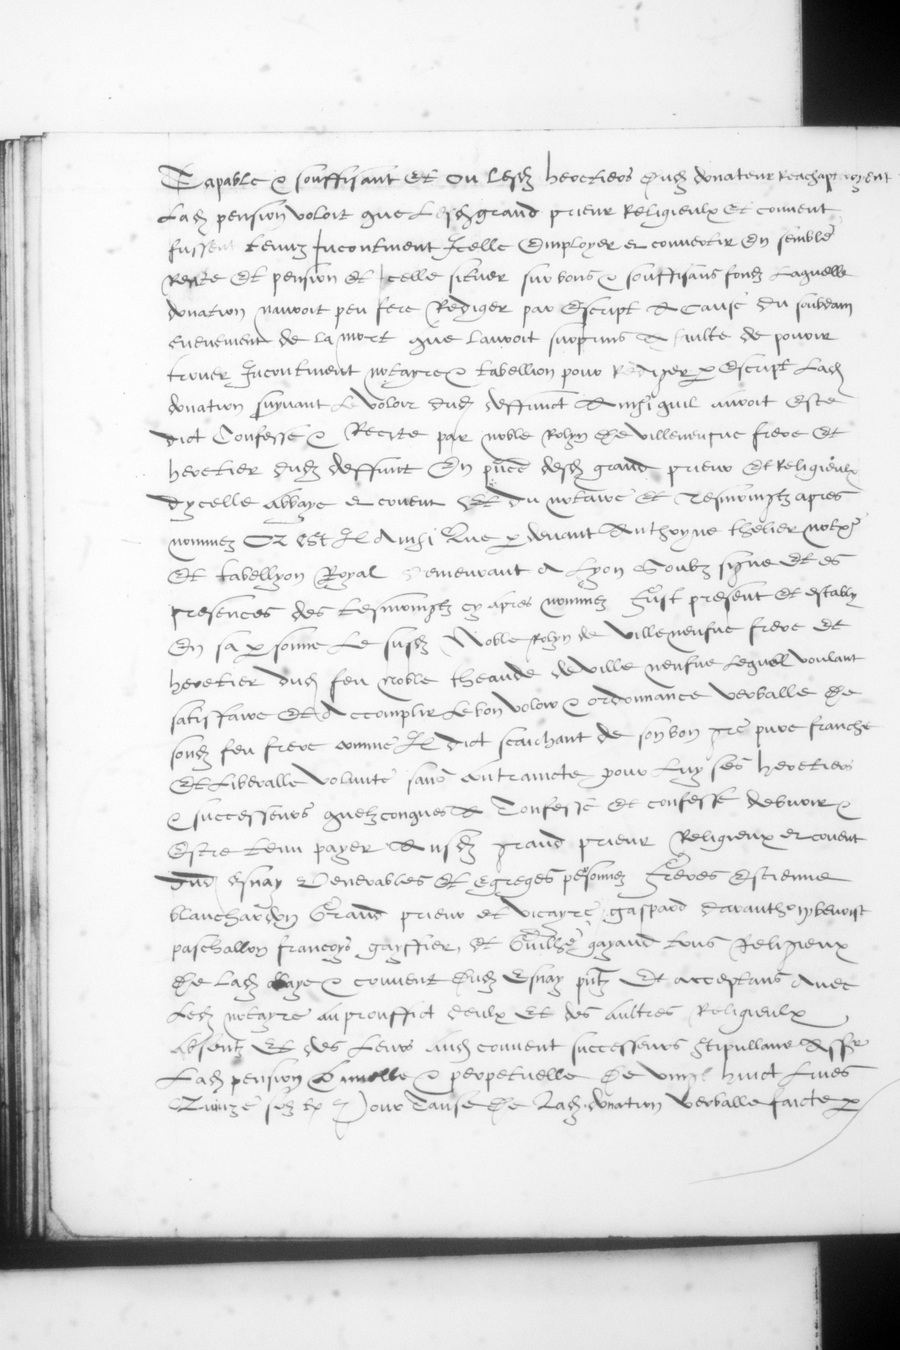 Capable & souffisant Et ou lesdz heretiers dudz donateur reachapteroyent
Ladz pension voloit que Lesdz grand prieur Religieulx Et couvent
fussent tenuz Incontinent Icelle Employer et convertir En semble
Rente Et pension Et Icelle situer sur bons & souffisans fondz Laquelle
donation navoit peu fere Rediger par Escript A Cause du soubdain
evenement de la mort que lavoit surprins A faulte de povoir
trover Incontinent notayre & tabellion pour Rediger p Escript Ladz
donation suyvant Le voloir dudz deffunct Ainsi quil avoit Este
dict Confesse & Recite par noble Rolyn de villeneufue frere Et
heretier dudz deffunt En pnce desdz grand prieur Et Religieulx
dycelle Abbaye et covent Et du notaire Et Tesmoingtz apres
nommez Or est Il Ainsi Que p devant Anthoyne thelier not
Et tabellyon Royal Demeurant A Lyon Soubz signe Et es
presences des tesmoingtz cy apres nommez fust present Et estably
En sa p sonne Le susdz Noble Rolyn de Villeneufue frere Et
heretier dudz feu Noble theaude de ville neufue Lequel voulant
satisfaire Et Accomplir Le bon voloir & ordonnance verballe de
sondz feu frere comme Il dict scaichant de son bon gre pure franche
Et Liberalle volunte sans contraincte pour Luy ses heretiers
& successeurs quelzconques A Confesse Et confesse debvoir &
Estre tenu payer Ausdz grand prieur Religieux et covent
dudz Esnay Venerables Et Egreges personnes freres Estienne
blanchardon Grand prieur et vicayre gaspard benoist
paschallon francoys gayffier, et Guille gayand tous Religieux
de Ladz abaye & couvent dudz Esnay pntz Et acceptans Avec
Ledz notayre au prouffict deulx Et des aultres Religieulx
absentz Et des Leurs Audz couvent successeurs stipullant
Ladz pension Annuelle & perpetuelle de vingt huict Livres
Quinze solz tz Pour Cause de Ladz donation verballe faicte p